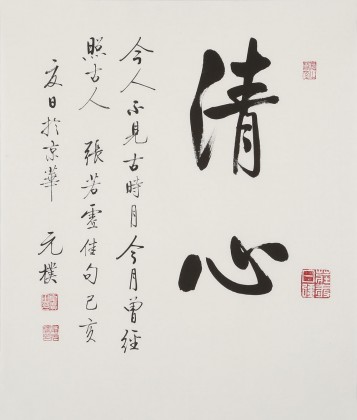 清心
今人不見古時月今月曾經
照古人 張若虛佳句己亥
夏日於京華 元樸